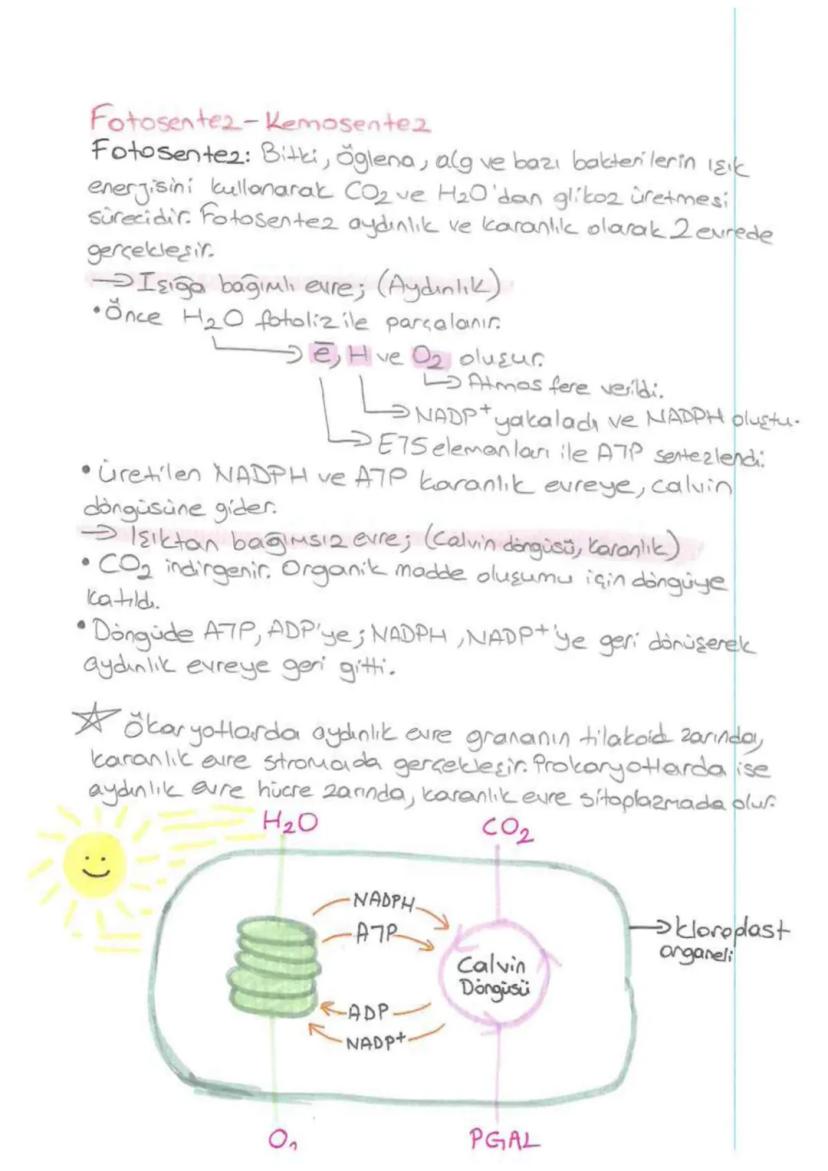 Fotosentez-Kemosentez
Fotosentez: Bitki, öglena, alg ve bazı bakterilerin ışık
energisini kullanarak CO2 ve H2O'dan glikoz üretmesi
sürecidir. Fotosentez aydınlık ve karanlık olarak 2 evrede
gerçekleşir.
→ Işığa bağımlı evre; (Aydınlık)
• Önce H2O fotoliz ile parçalanır.
→ e̅, H ve O2 oluşur.
→ Atmosfere verildi.
→ NADP+ yakaladı ve NADPH oluştu.
→ ETS elemanları ile ATP sentezlendi.
• Üretilen NADPH ve ATP karanlık evreye, calvin
döngüsüne gider.
→ Işıktan bağımsız evre; (Calvin döngüsü, karanlık)
• CO2 indirgenir. Organik madde oluşumu için döngüye
katıldı.
• Döngüde ATP, ADP'ye; NADPH, NADP+'ye geri dönüşerek
aydınlık evreye geri gitti.
☆ Ökaryotlarda aydınlık evre grananın tilakoid zarında,
karanlık evre stromada gerçekleşir. Prokaryotlarda ise
aydınlık evre hücre zarında, karanlık evre sitoplazmada olur.
H2O
CO2
NADPH
ATP
Calvin
Döngüsü
ADP
NADP+
→ kloroplast
organeli
O2
PGAL